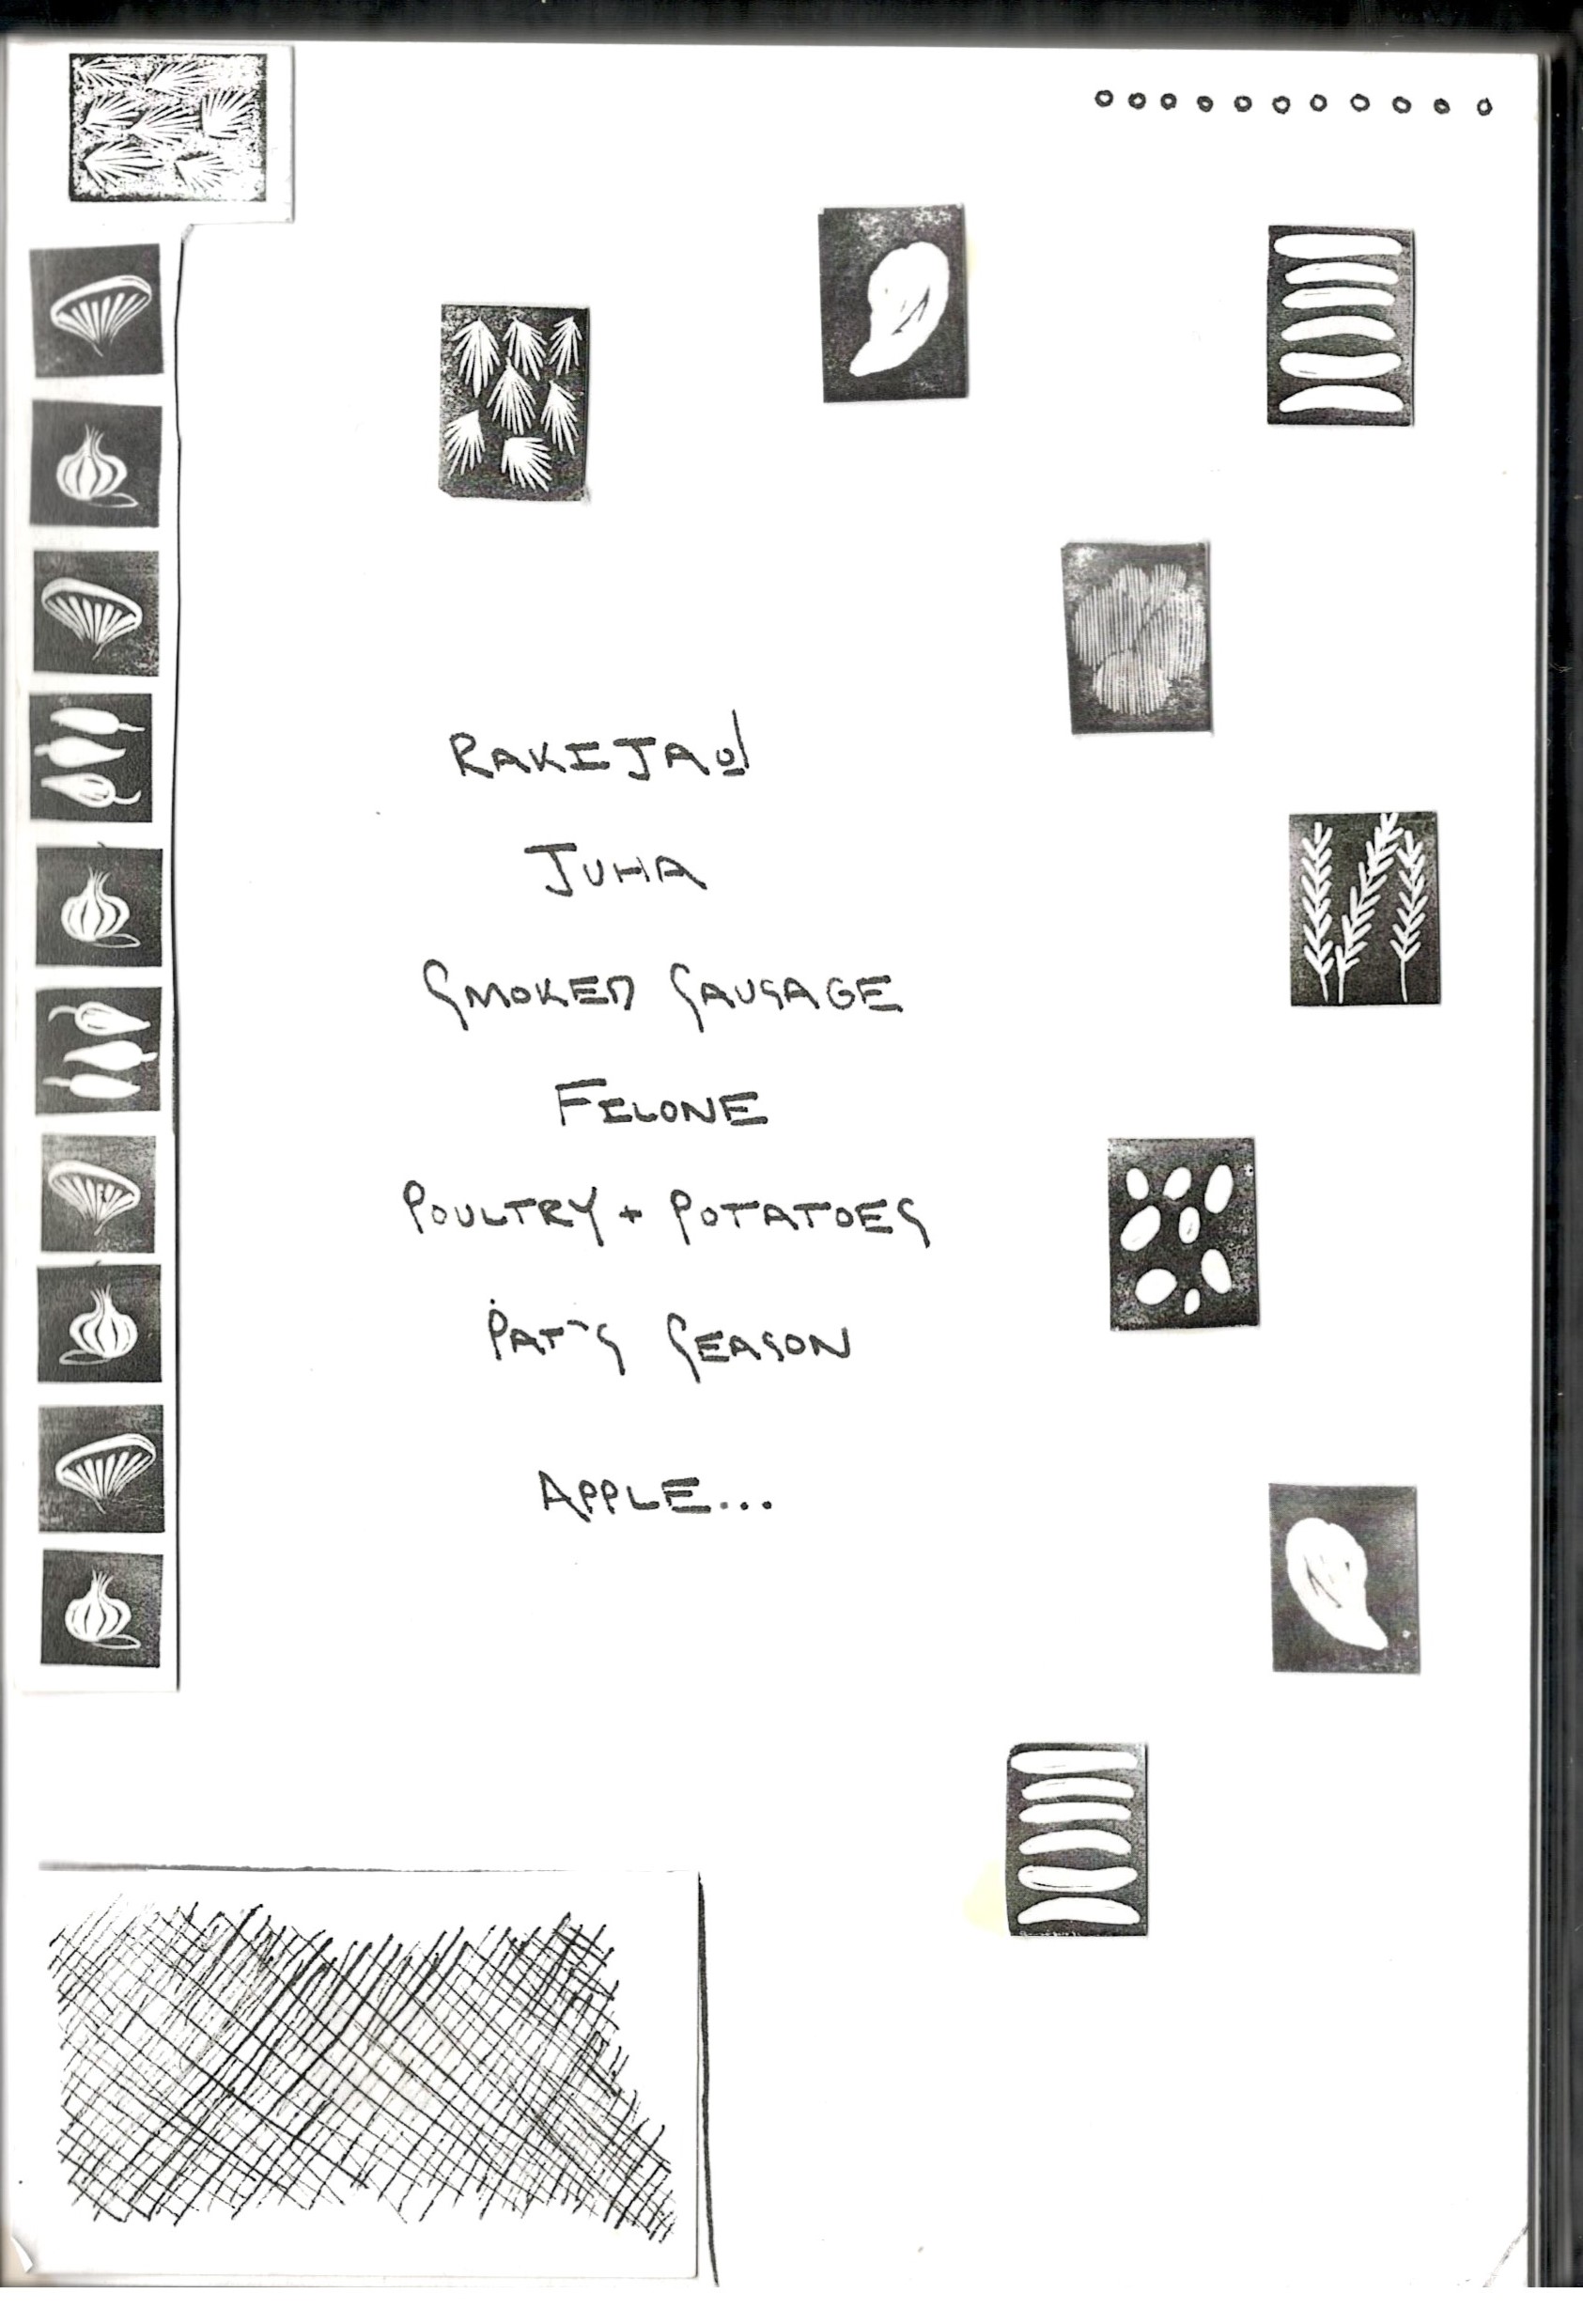 RAKIJA
JUHA
SMOKED SAUSAGE
FILONE
POULTRY + POTATOES
PAT'S SEASON
APPLE...